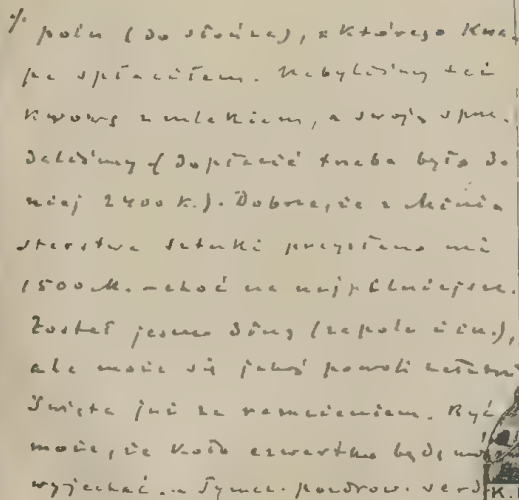 polu (do słońca), z którego Kna-
pe spłaciłem. Nabyliśmy też
krowę z mlekiem, a swoją sprze-
daliśmy (dopłacić trzeba było do
niej 2400 K.). Dobrze, że z Mini-
sterstwa Sztuki przysłano mi
1500 M. - choć na najpilniejsze.
Został jeszcze dług (za pole i in.),
ale może się jakoś powoli załatwi
Święta już za ramieniem. Być
może, że koło czwartku będę mógł
wyjechać. a Tymcz. pozdrow. serd
K.